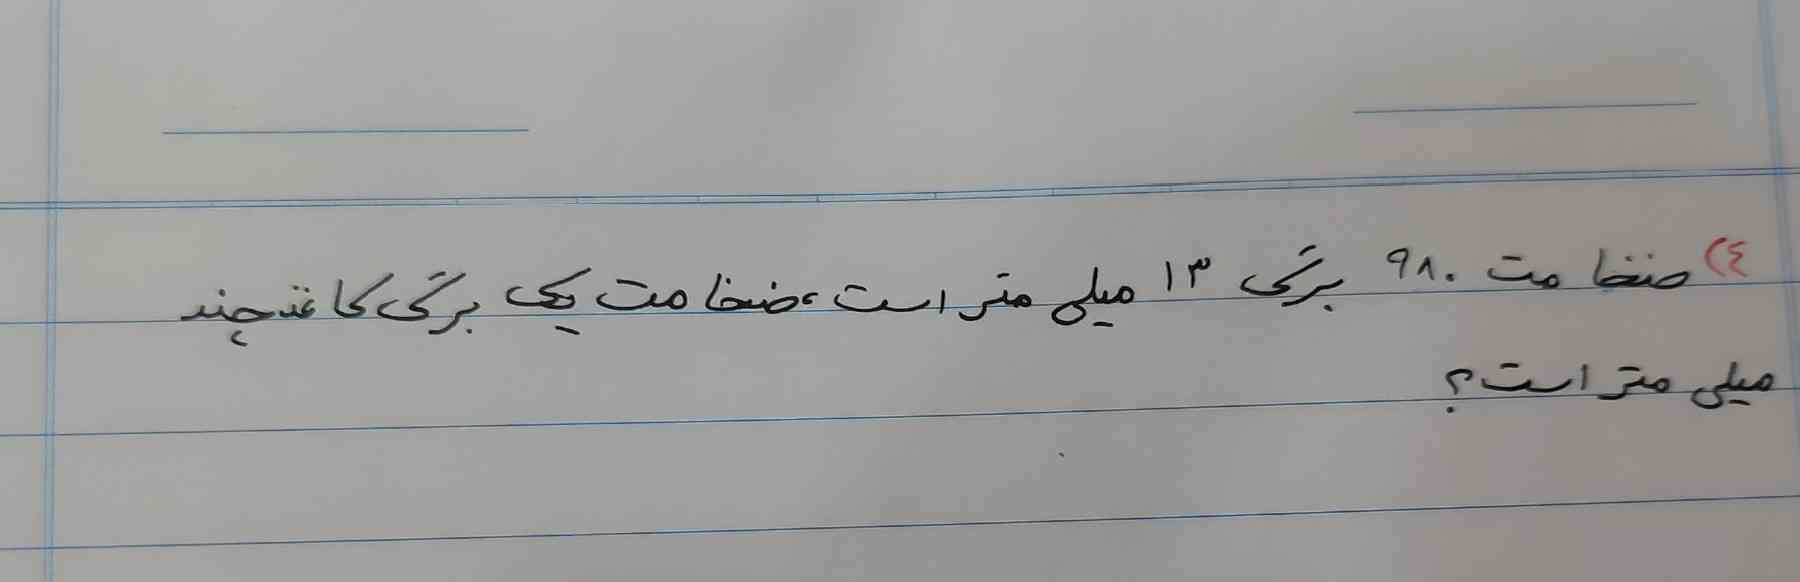 ٤) ضخامت ۹۸۰ برگی ۱۳ میلی متر است، ضخامت یک برگی کاغذ چند
میلی متر است؟